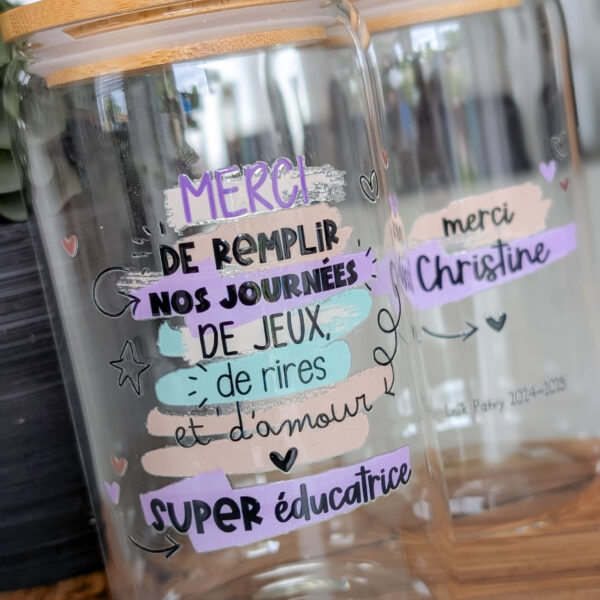 MERCI
DE REMPLIR
NOS JOURNÉES
DE JEUX,
de rires
et d'amour
SUPER éducatrice
merci
Christine
Patry 2024-2025